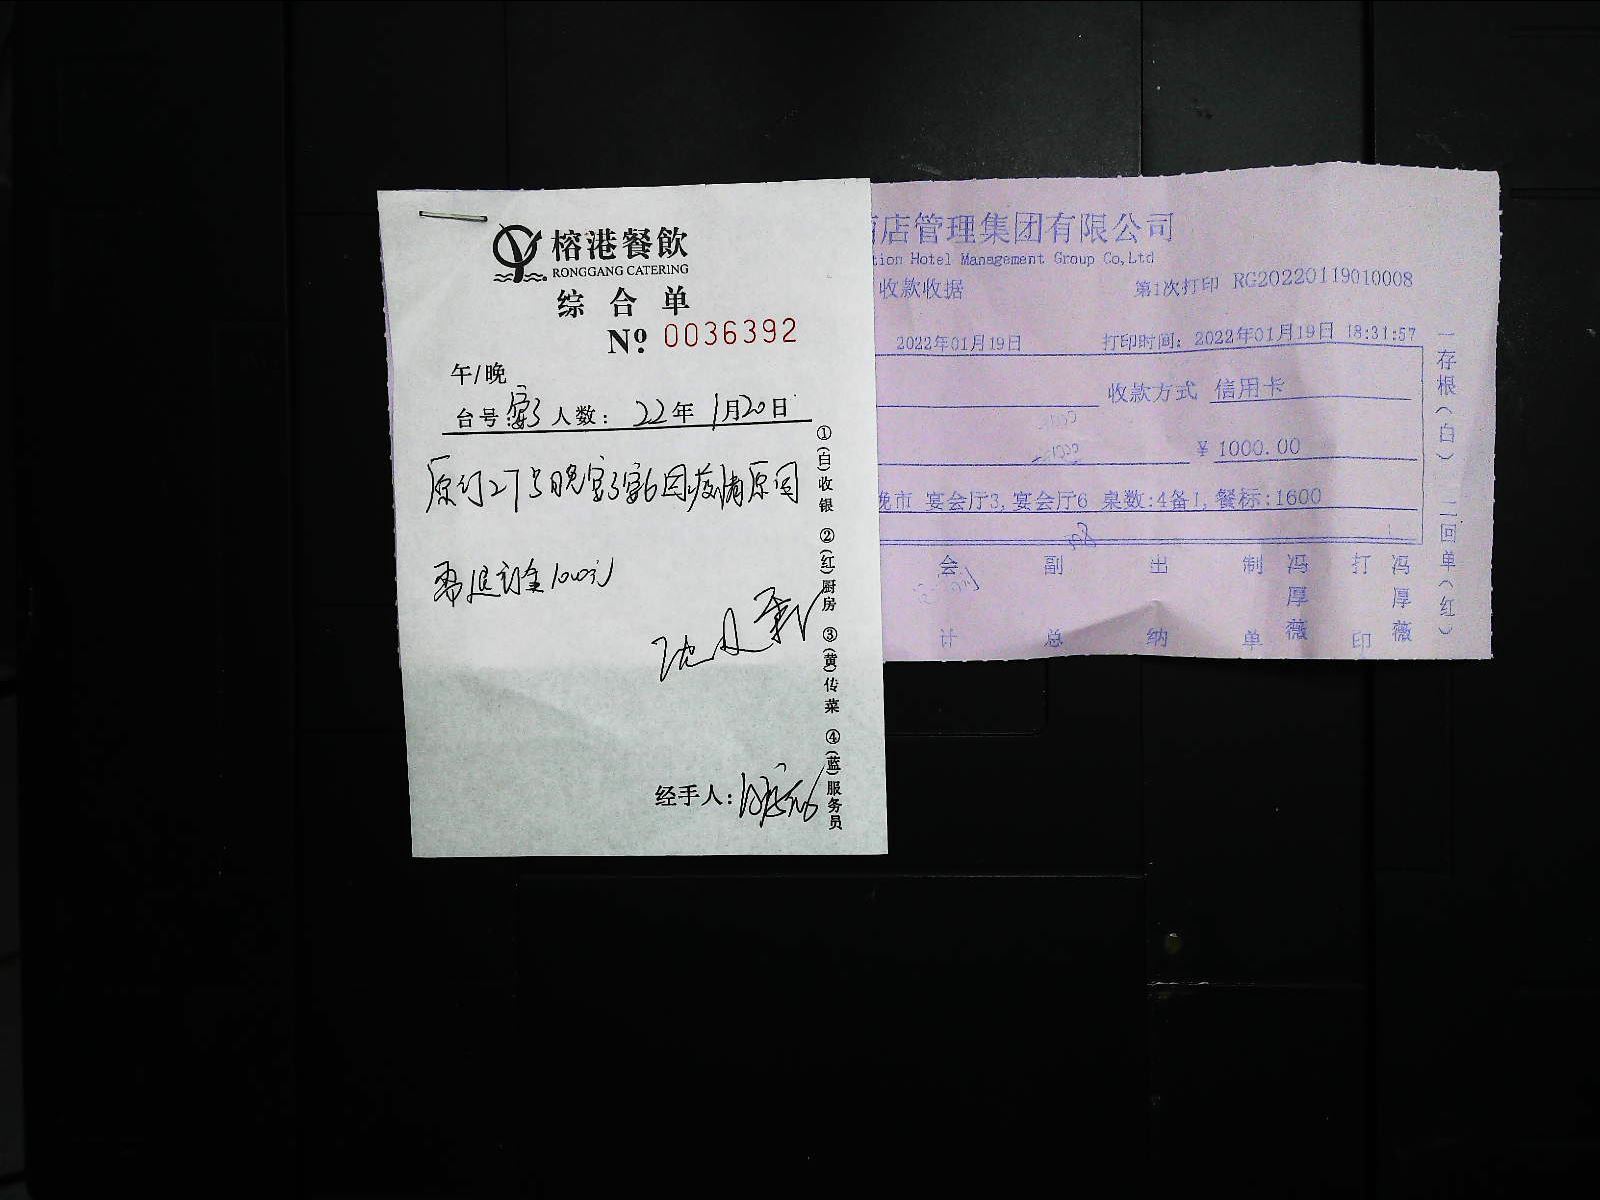 榕港餐飲
RONGGANG CATERING
综合单
Nº. 0036392
午/晚
台号 宴3 人数: 22年1月20日
原订27号晚宴3宴6因疫情原因
需退订金1000元
经手人:
①(白)收银 ②(红)厨房 ③(黄)传菜 ④(蓝)服务员
店管理集团有限公司
tion Hotel Management Group Co,Ltd
收款收据 第1次打印 RG20220119010008
2022年01月19日 打印时间: 2022年01月19日 18:31:57
收款方式 信用卡
¥ 1000.00
晚市 宴会厅3,宴会厅6 桌数:4备1,餐标:1600
会计 副总 出纳 制单 冯厚薇 打印 冯厚薇
一存根(白) 二回单(红)